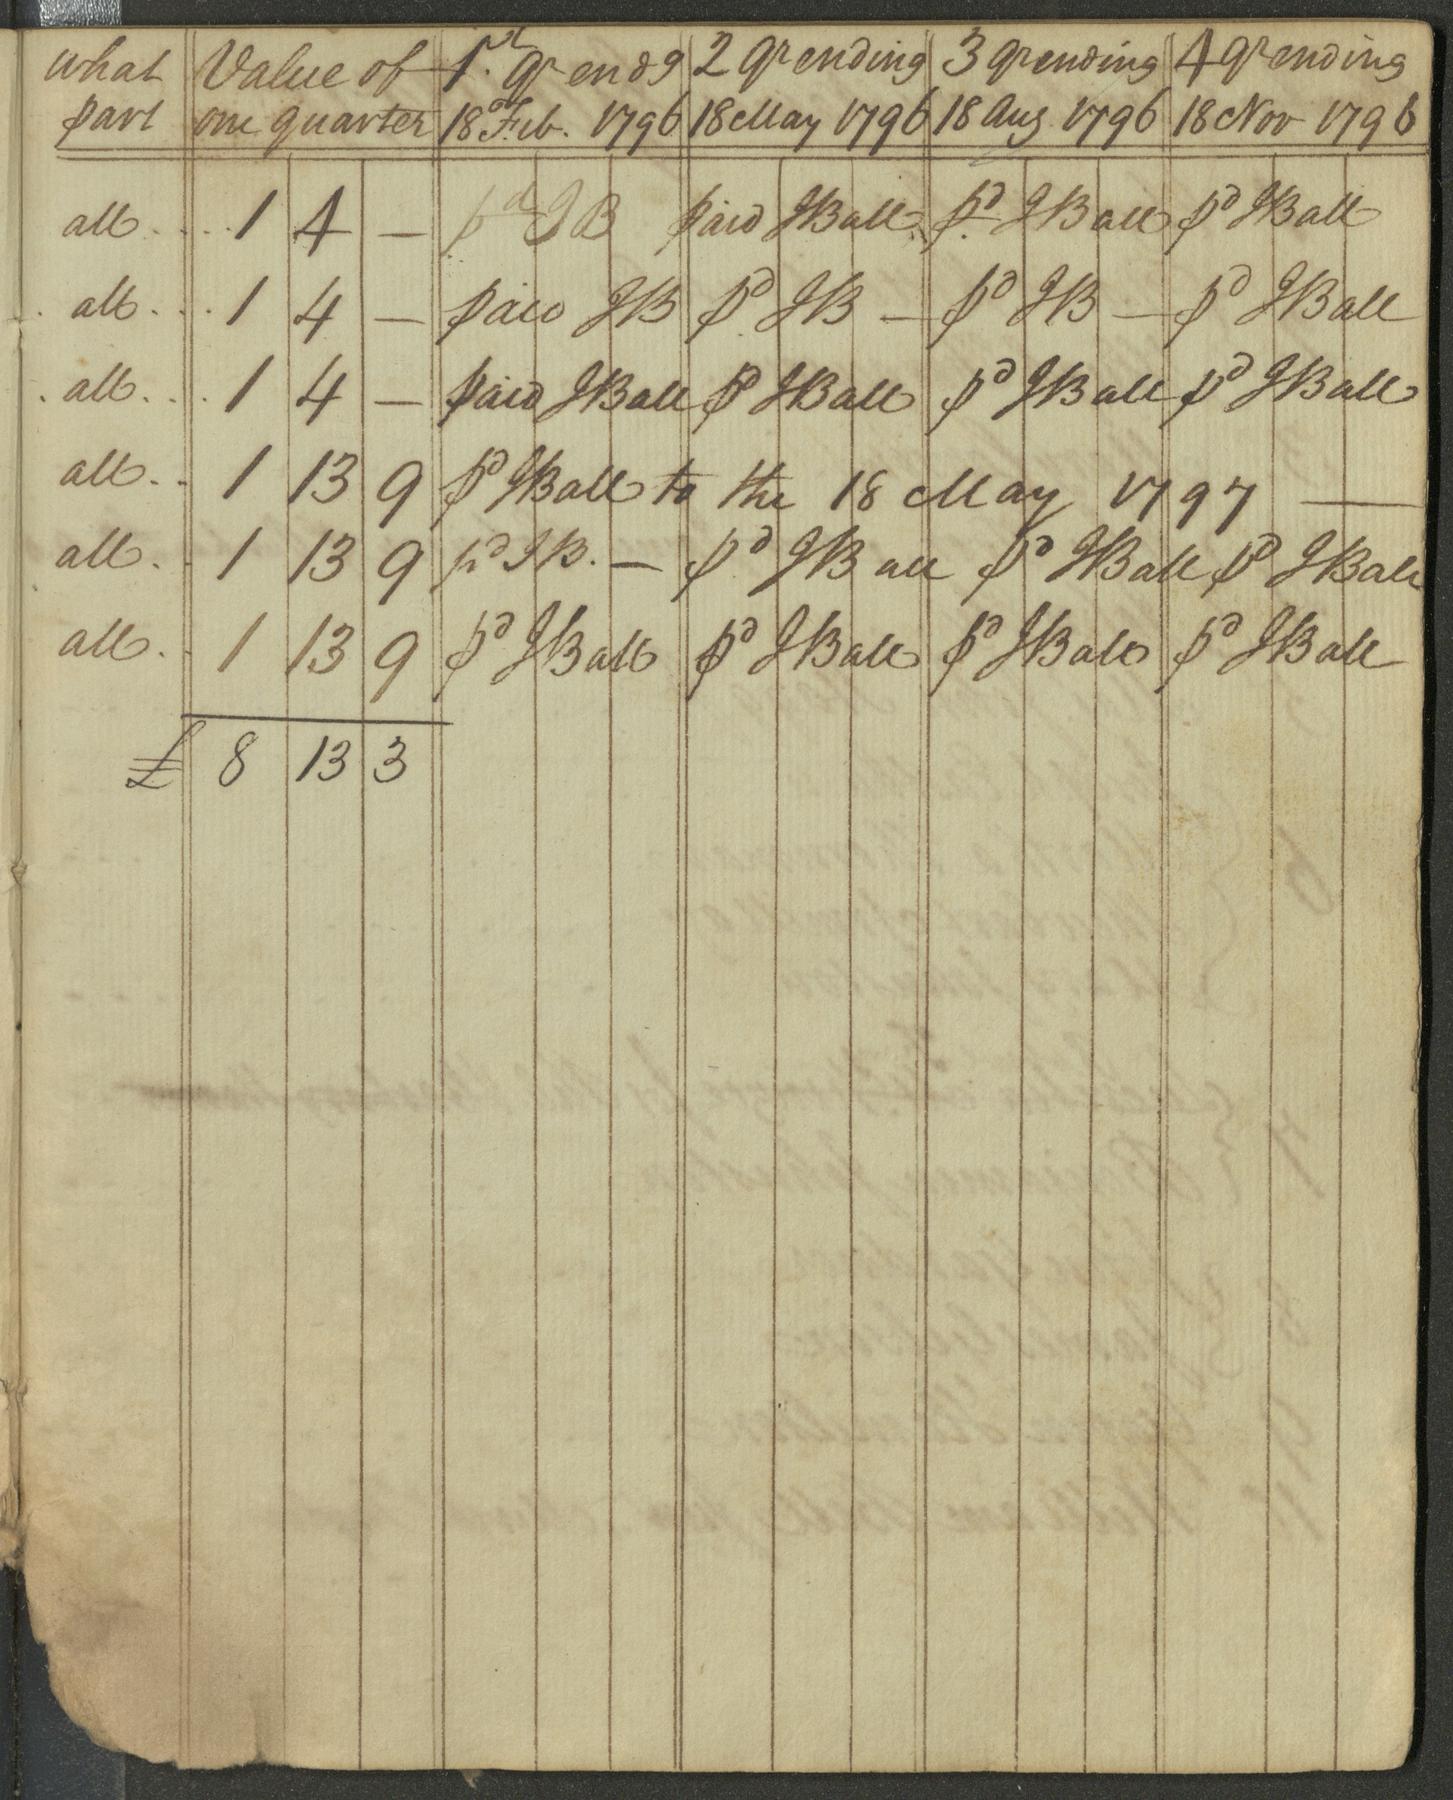 what Value of 1st qr endg 2 qr ending 3 qr ending 4 qr ending
part one quarter 18th Feb. 1796 18 May 1796 18 Aug 1796 18 Nov 1796
all .... 1 4 — pd JB paid JBall pd JBall pd JBall
all ... 1 4 — paid JB pd JB — pd JB — pd JBall
all ... 1 4 — paid JBall pd JBall pd JBall pd JBall
all .. 1 13 9 pd JBall to the 18 May 1797 —
all .. 1 13 9 pd JB. — pd JBall pd JBall pd JBall
all .. 1 13 9 pd JBall pd JBall pd JBall pd JBall
£ 8 13 3